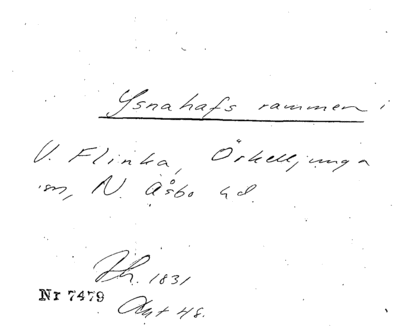 Ysnahafs rammen i
V. Flinka, Örkelljunga
sn, N. Åsbo hd.
Jh. 1831
Nr 7479
Akt 48.